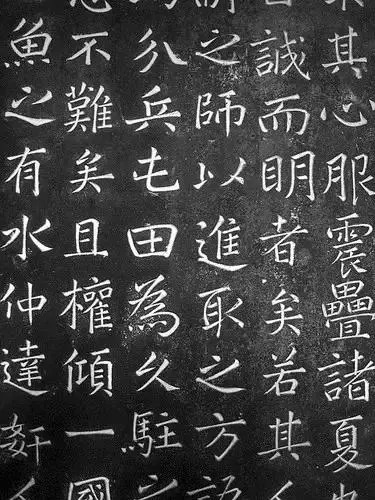 其心服震疊諸夏
誠而明者矣若其
之師以進取之方語
分兵屯田為久駐之
不難矣且權傾一國
魚之有水仲達奸